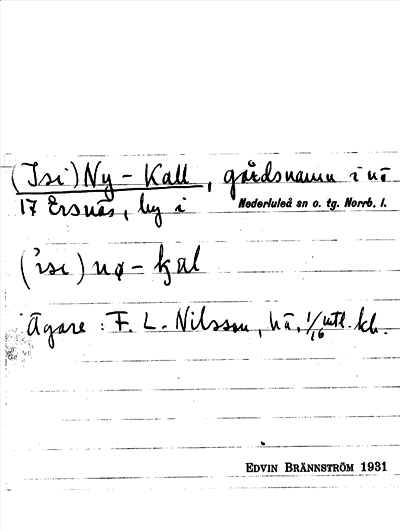 (Isi) Ny - Kall, gårdsnamn i nr
17 Ersnäs, by i Nederluleå sn o. tg. Norrb. l.
('isi) nø - kal
Ägare: F. L. Nilsson, hä. 1/16 mtl. kr.
EDVIN BRÄNNSTRÖM 1931